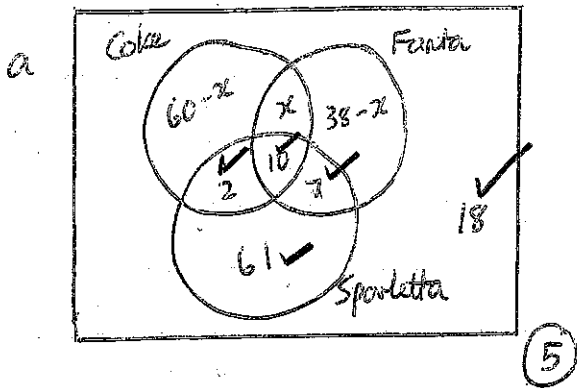 a
Coke Fanta
60-x x 38-x
2 10 7
18
61
Sparletta
5